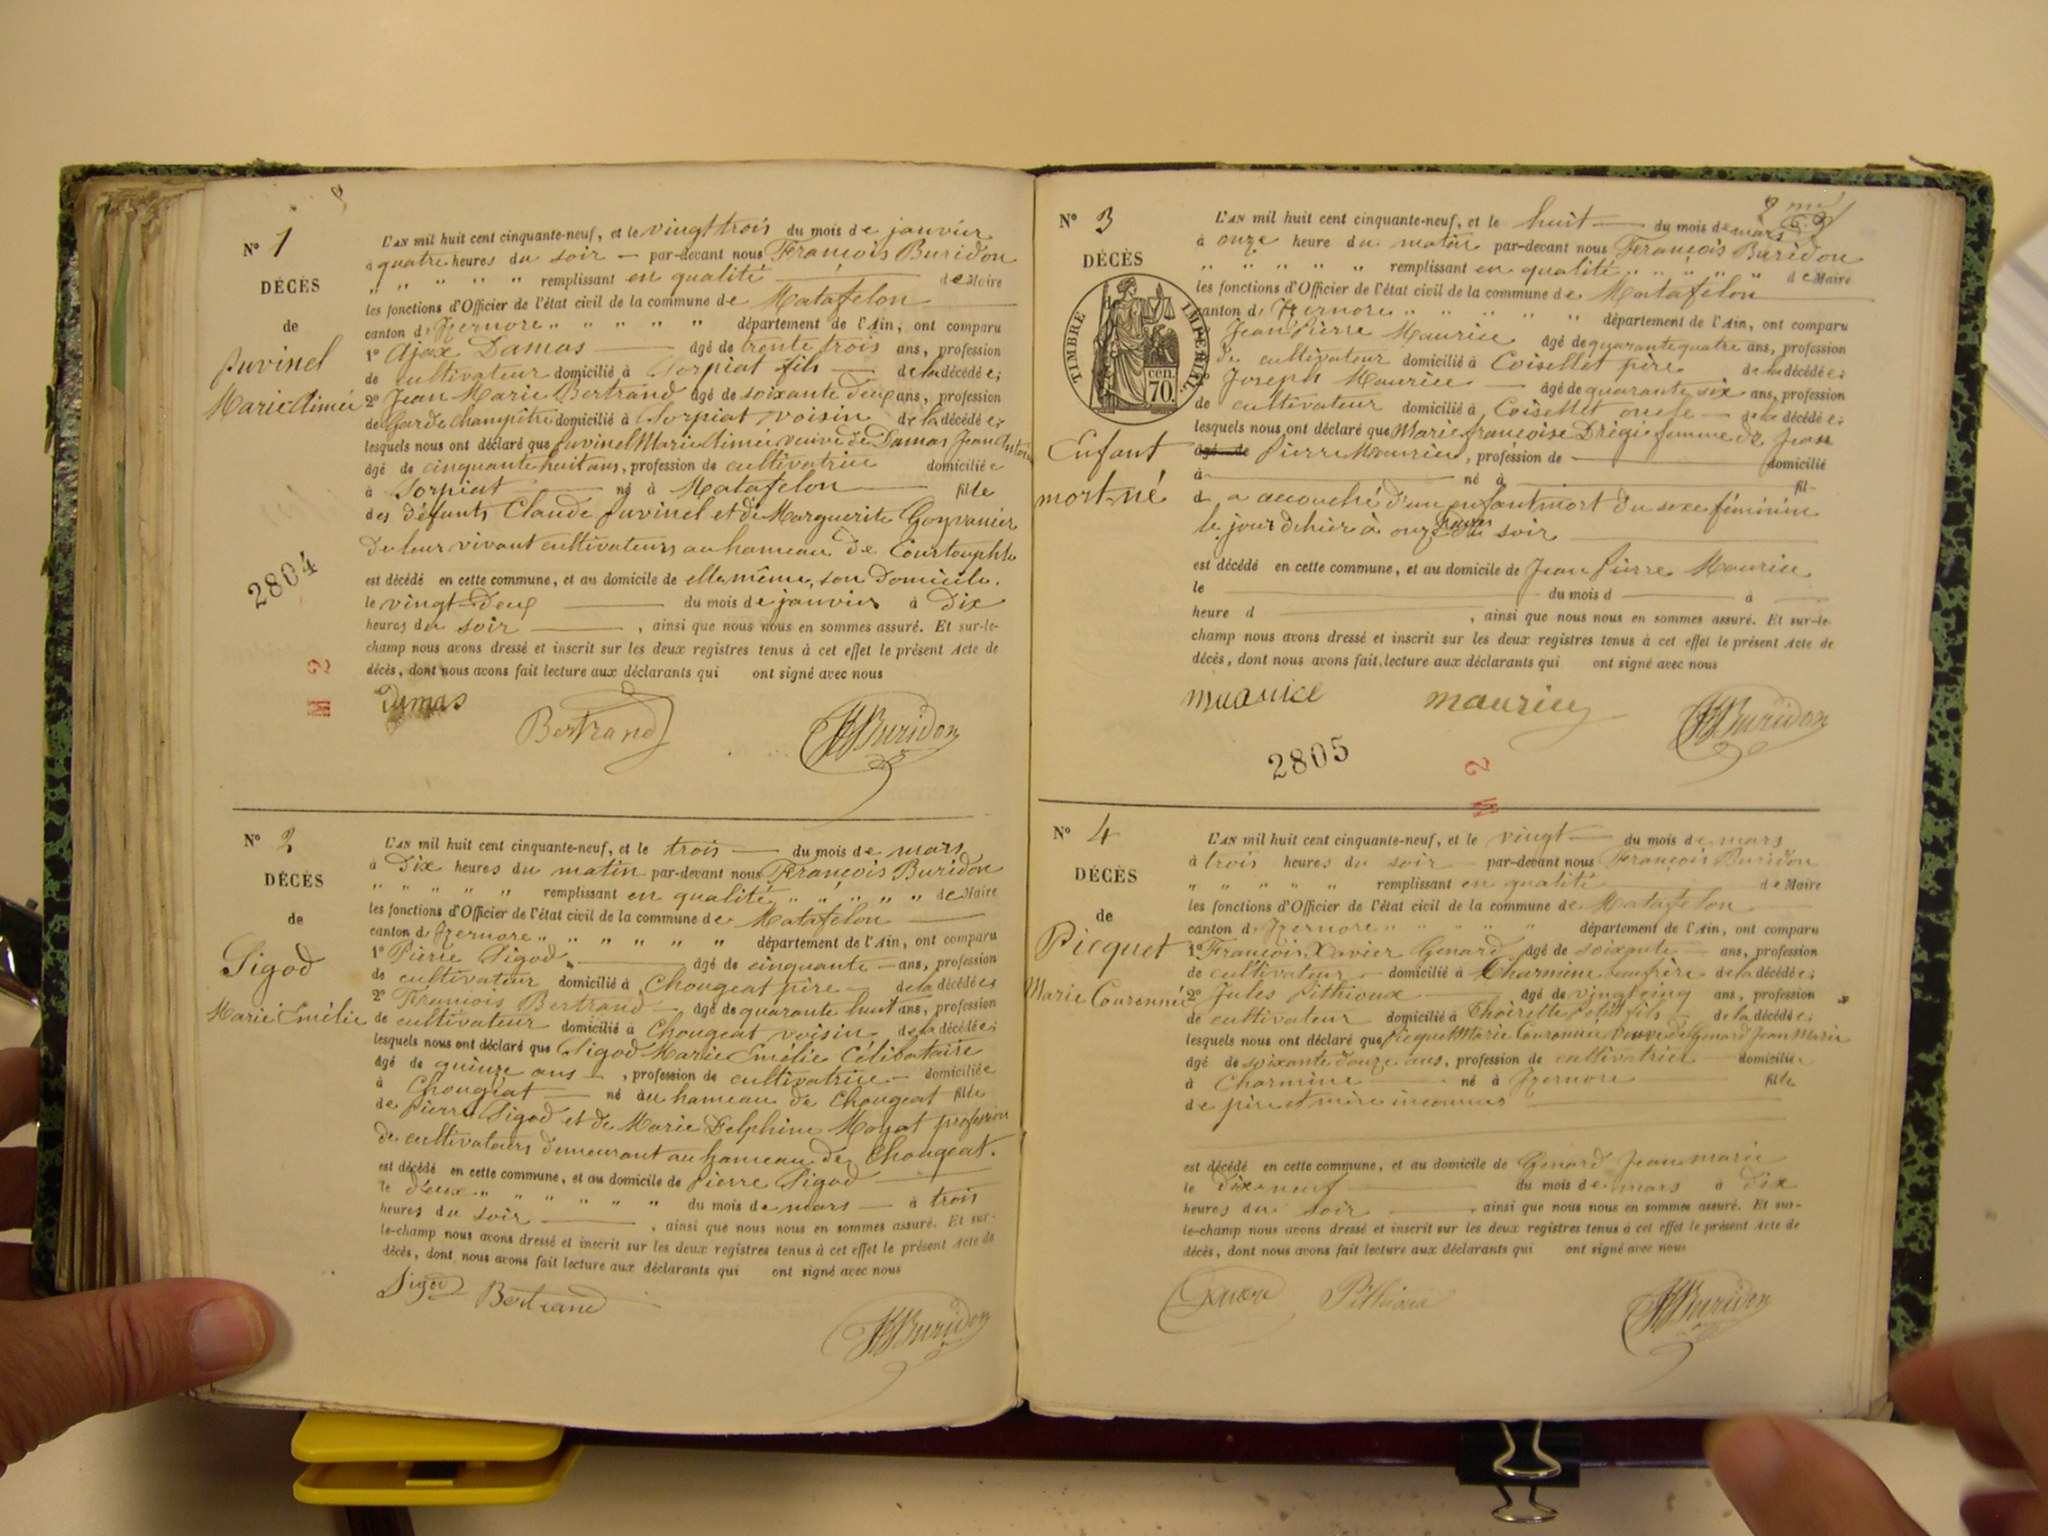 N° 1
DÉCÈS
de
Juvinel
Marie Aimée
2804
L'AN mil huit cent cinquante-neuf, et le vingt trois du mois de janvier
à quatre heures du soir — par-devant nous François Buridon
" " " " " remplissant en qualité — de Maire
les fonctions d'Officier de l'état civil de la commune de Matafelon
canton d'Izernore " " " " " département de l'Ain, ont comparu
1° Ajax Damas — âgé de trente trois ans, profession
de cultivateur domicilié à Sorpiat fils — de la décédée;
2° Jean Marie Bertrand âgé de soixante deux ans, profession
de Garde champêtre domicilié à Sorpiat voisin de la décédée;
lesquels nous ont déclaré que Juvinel Marie Aimée veuve de Damas Jean Antoine
âgé de cinquante huit ans, profession de cultivatrice domiciliée
à Sorpiat — né à Matafelon — fille
des défunts Claude Juvinel et de Marguerite
de leur vivant cultivateurs au hameau de Courtouphle
est décédé en cette commune, et au domicile de elle même, son domicile.
le vingt-deux — du mois de janvier à dix
heures du soir —, ainsi que nous nous en sommes assuré. Et sur-le-
champ nous avons dressé et inscrit sur les deux registres tenus à cet effet le présent Acte de
décès, dont nous avons fait lecture aux déclarants qui ont signé avec nous
Damas
Bertrand
Buridon
M 2
N° 2
DÉCÈS
de
Sigod
Marie Emélie
L'AN mil huit cent cinquante-neuf, et le trois — du mois de mars
à dix heures du matin par-devant nous François Buridon
" " " " " remplissant en qualité " " " " " de Maire
les fonctions d'Officier de l'état civil de la commune de Matafelon —
canton d'Izernore " " " " " " département de l'Ain, ont comparu
1° Pierre Sigod — âgé de cinquante — ans, profession
de cultivateur domicilié à Chougeat père — de la décédée
2° François Bertrand — âgé de quarante huit ans, profession
de cultivateur domicilié à Chougeat voisin de la décédée;
lesquels nous ont déclaré que Sigod Marie Emélie Célibataire
âgé de quinze ans —, profession de cultivatrice — domiciliée
à Chougeat — né au hameau de Chougeat fille
de Pierre Sigod et de Marie Delphine profession
de cultivateurs demeurant au hameau de Chougeat.
est décédé en cette commune, et au domicile de Pierre Sigod —
le deux " " " " " " du mois de mars — à trois
heures du soir —, ainsi que nous nous en sommes assuré. Et sur-
le-champ nous avons dressé et inscrit sur les deux registres tenus à cet effet le présent Acte de
décès, dont nous avons fait lecture aux déclarants qui ont signé avec nous
Sigod Bertrand
Buridon
N° 3
DÉCÈS
TIMBRE IMPÉRIAL
70 cen.
Enfant
mort-né
L'AN mil huit cent cinquante-neuf, et le huit — du mois de mars
à onze heure du matin par-devant nous François Buridon
" " " " " remplissant en qualité " " " " " de Maire
les fonctions d'Officier de l'état civil de la commune de Matafelon
canton d'Izernore " " " " " département de l'Ain, ont comparu
Jean Pierre Maurice âgé de quarante quatre ans, profession
de cultivateur domicilié à Coisellet père — de la décédée;
Joseph Maurice — âgé de quarante six ans, profession
de cultivateur domicilié à Coisellet oncle — de la décédée;
lesquels nous ont déclaré que Marie françoise femme de Jean
âgé de Pierre Maurice, profession de — domicilié
à — né à — fil
d a accouché d'un enfant mort du sexe féminin
le jour d'hier à onze heures du soir —
est décédé en cette commune, et au domicile de Jean Pierre Maurice
le — du mois d — à —
heure d —, ainsi que nous nous en sommes assuré. Et sur-le-
champ nous avons dressé et inscrit sur les deux registres tenus à cet effet le présent Acte de
décès, dont nous avons fait lecture aux déclarants qui ont signé avec nous
maurice
maurice
Buridon
2805
M 2
N° 4
DÉCÈS
de
Picquet
Marie Couronnée
L'AN mil huit cent cinquante-neuf, et le vingt — du mois de mars
à trois heures du soir par-devant nous François Buridon
" " " " " remplissant en qualité — de Maire
les fonctions d'Officier de l'état civil de la commune de Matafelon
canton d'Izernore " " " " " département de l'Ain, ont comparu
1° François Xavier Genard âgé de soixante — ans, profession
de cultivateur — domicilié à Charmine beaufrère de la décédée;
2° Jules Pithioux — âgé de vingt cinq ans, profession
de cultivateur domicilié à Thoirette petit fils — de la décédée;
lesquels nous ont déclaré que Picquet Marie Couronnée veuve de Genard Jean Marie
âgé de soixante douze ans, profession de cultivatrice — domiciliée
à Charmine — né à Izernore — fille
de père et mère inconnus —
est décédé en cette commune, et au domicile de Genard Jean marie
le dix neuf — du mois de mars à dix
heures du soir —, ainsi que nous nous en sommes assuré. Et sur-
le-champ nous avons dressé et inscrit sur les deux registres tenus à cet effet le présent Acte de
décès, dont nous avons fait lecture aux déclarants qui ont signé avec nous
Pithioux
Buridon